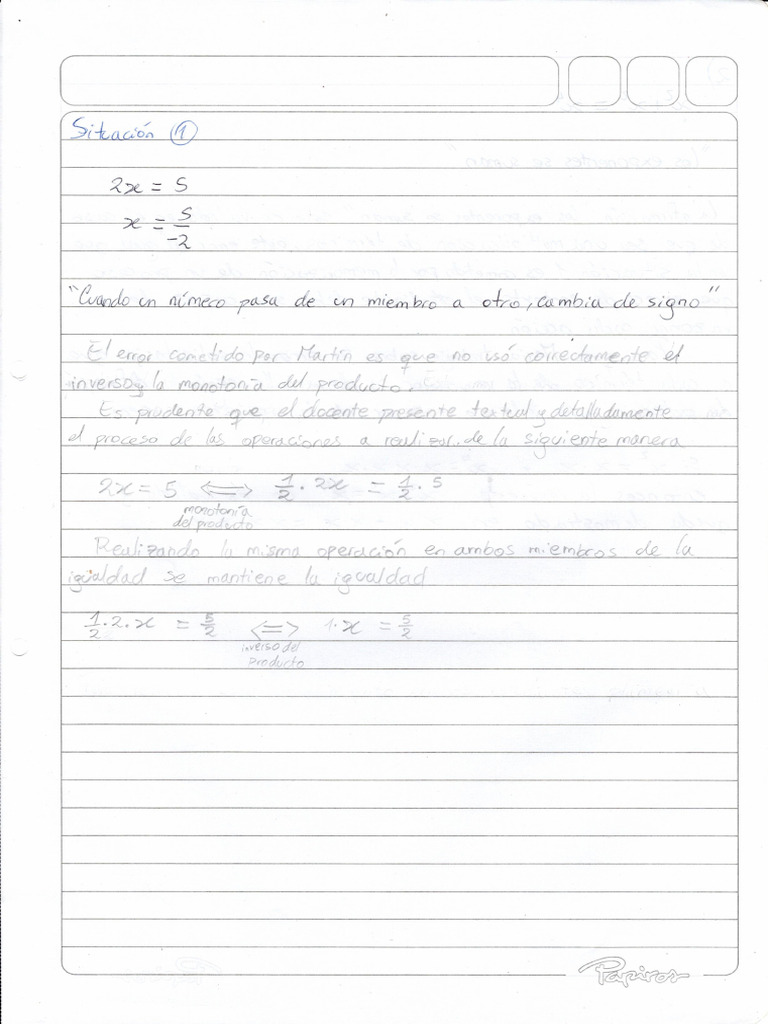 Situación ①
2x = 5
x = 5/-2
"Cuando un número pasa de un miembro a otro, cambia de signo"
El error cometido por Martín es que no usó correctamente el
inverso y la monotonía del producto.
Es prudente que el docente presente textual y detalladamente
el proceso de las operaciones a realizar. de la siguiente manera
2x = 5 ⟺ 1/2 . 2x = 1/2 . 5
monotonía
del producto
Realizando la misma operación en ambos miembros de la
igualdad se mantiene la igualdad
1/2 . 2 . x = 5/2 ⟺ 1 . x = 5/2
inverso del
producto
Papiros